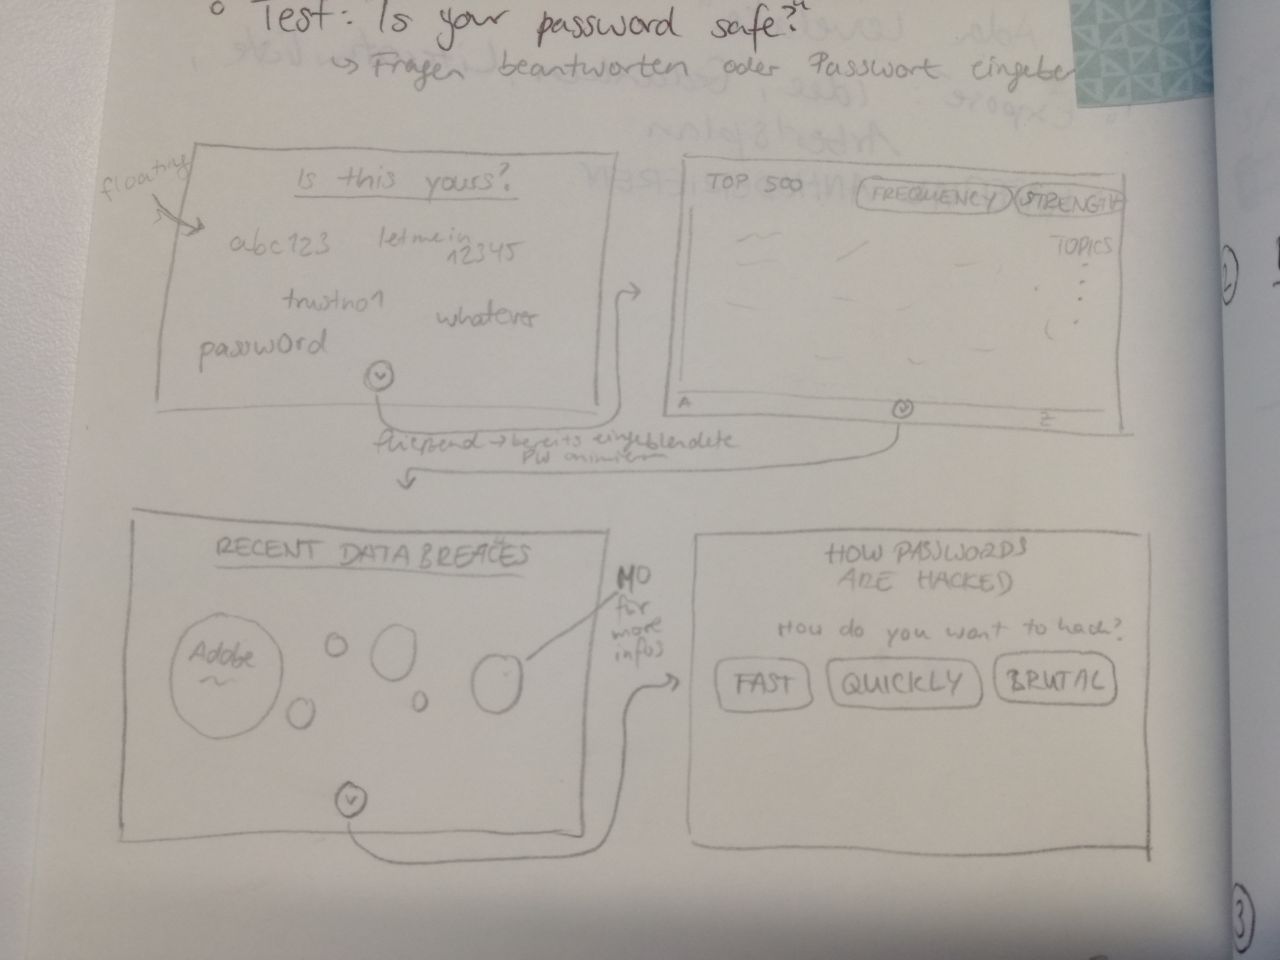 Test: Is your password safe?"
↳ Fragen beantworten oder Passwort eingeben
floating
Is this yours?
abc123
letmein
12345
trustno1
whatever
password
TOP 500
FREQUENCY
STRENGTH
TOPICS
A
Z
fließend → bereits eingeblendete
PW animieren
RECENT DATA BREACES
Adobe
MO
for
more
infos
HOW PASSWORDS
ARE HACKED
How do you want to hack?
FAST
QUICKLY
BRUTAL
2
3